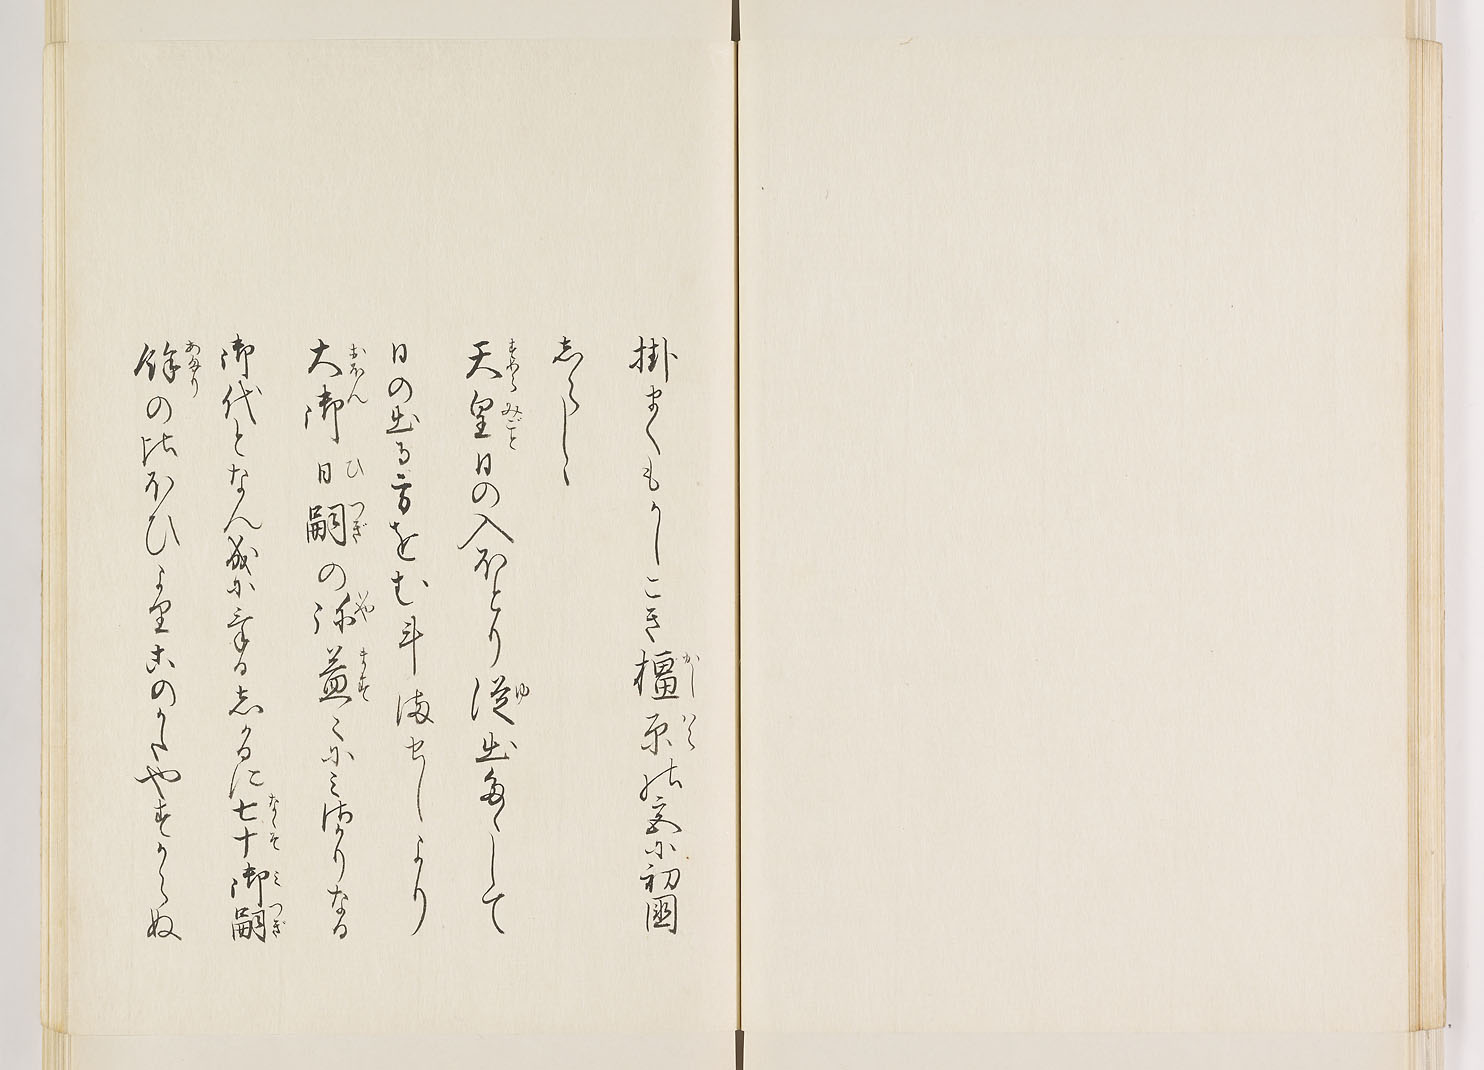 掛まくもかしこき橿原の宮に初國
しらしし
天皇日の入ほとり従出たゝして
日の出る方をむけませしより
大御日嗣の弥益々にみさかりなる
御代となん成にけるしかるに七十御嗣
餘のにほひよりこのかたやすからぬ